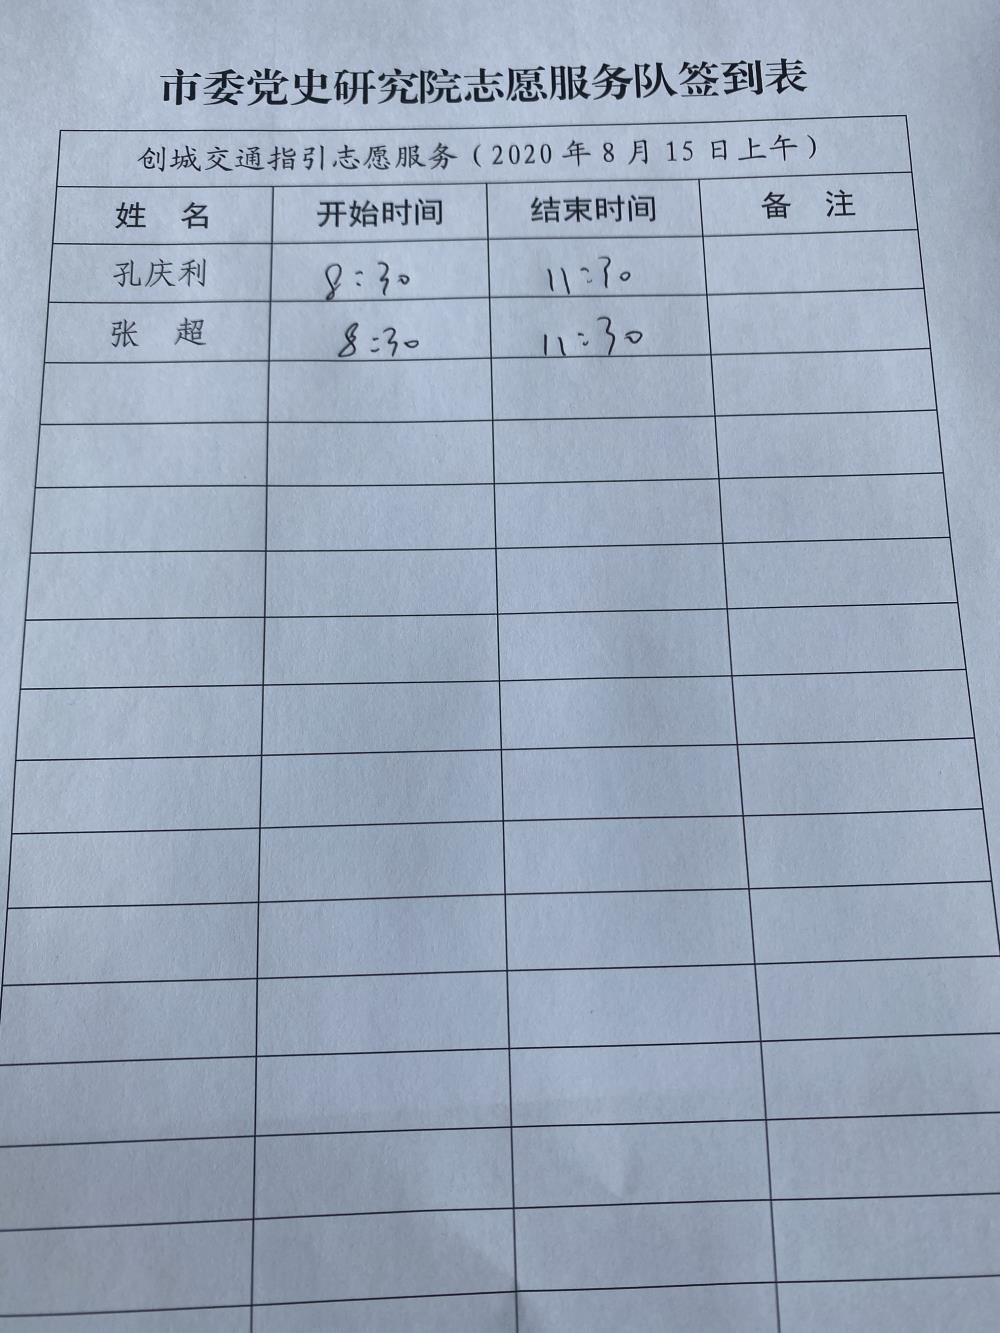 市委党史研究院志愿服务队签到表
创城交通指引志愿服务（2020年8月15日上午）
姓 名 开始时间 结束时间 备 注
孔庆利 8:30 11:30
张 超 8:30 11:30